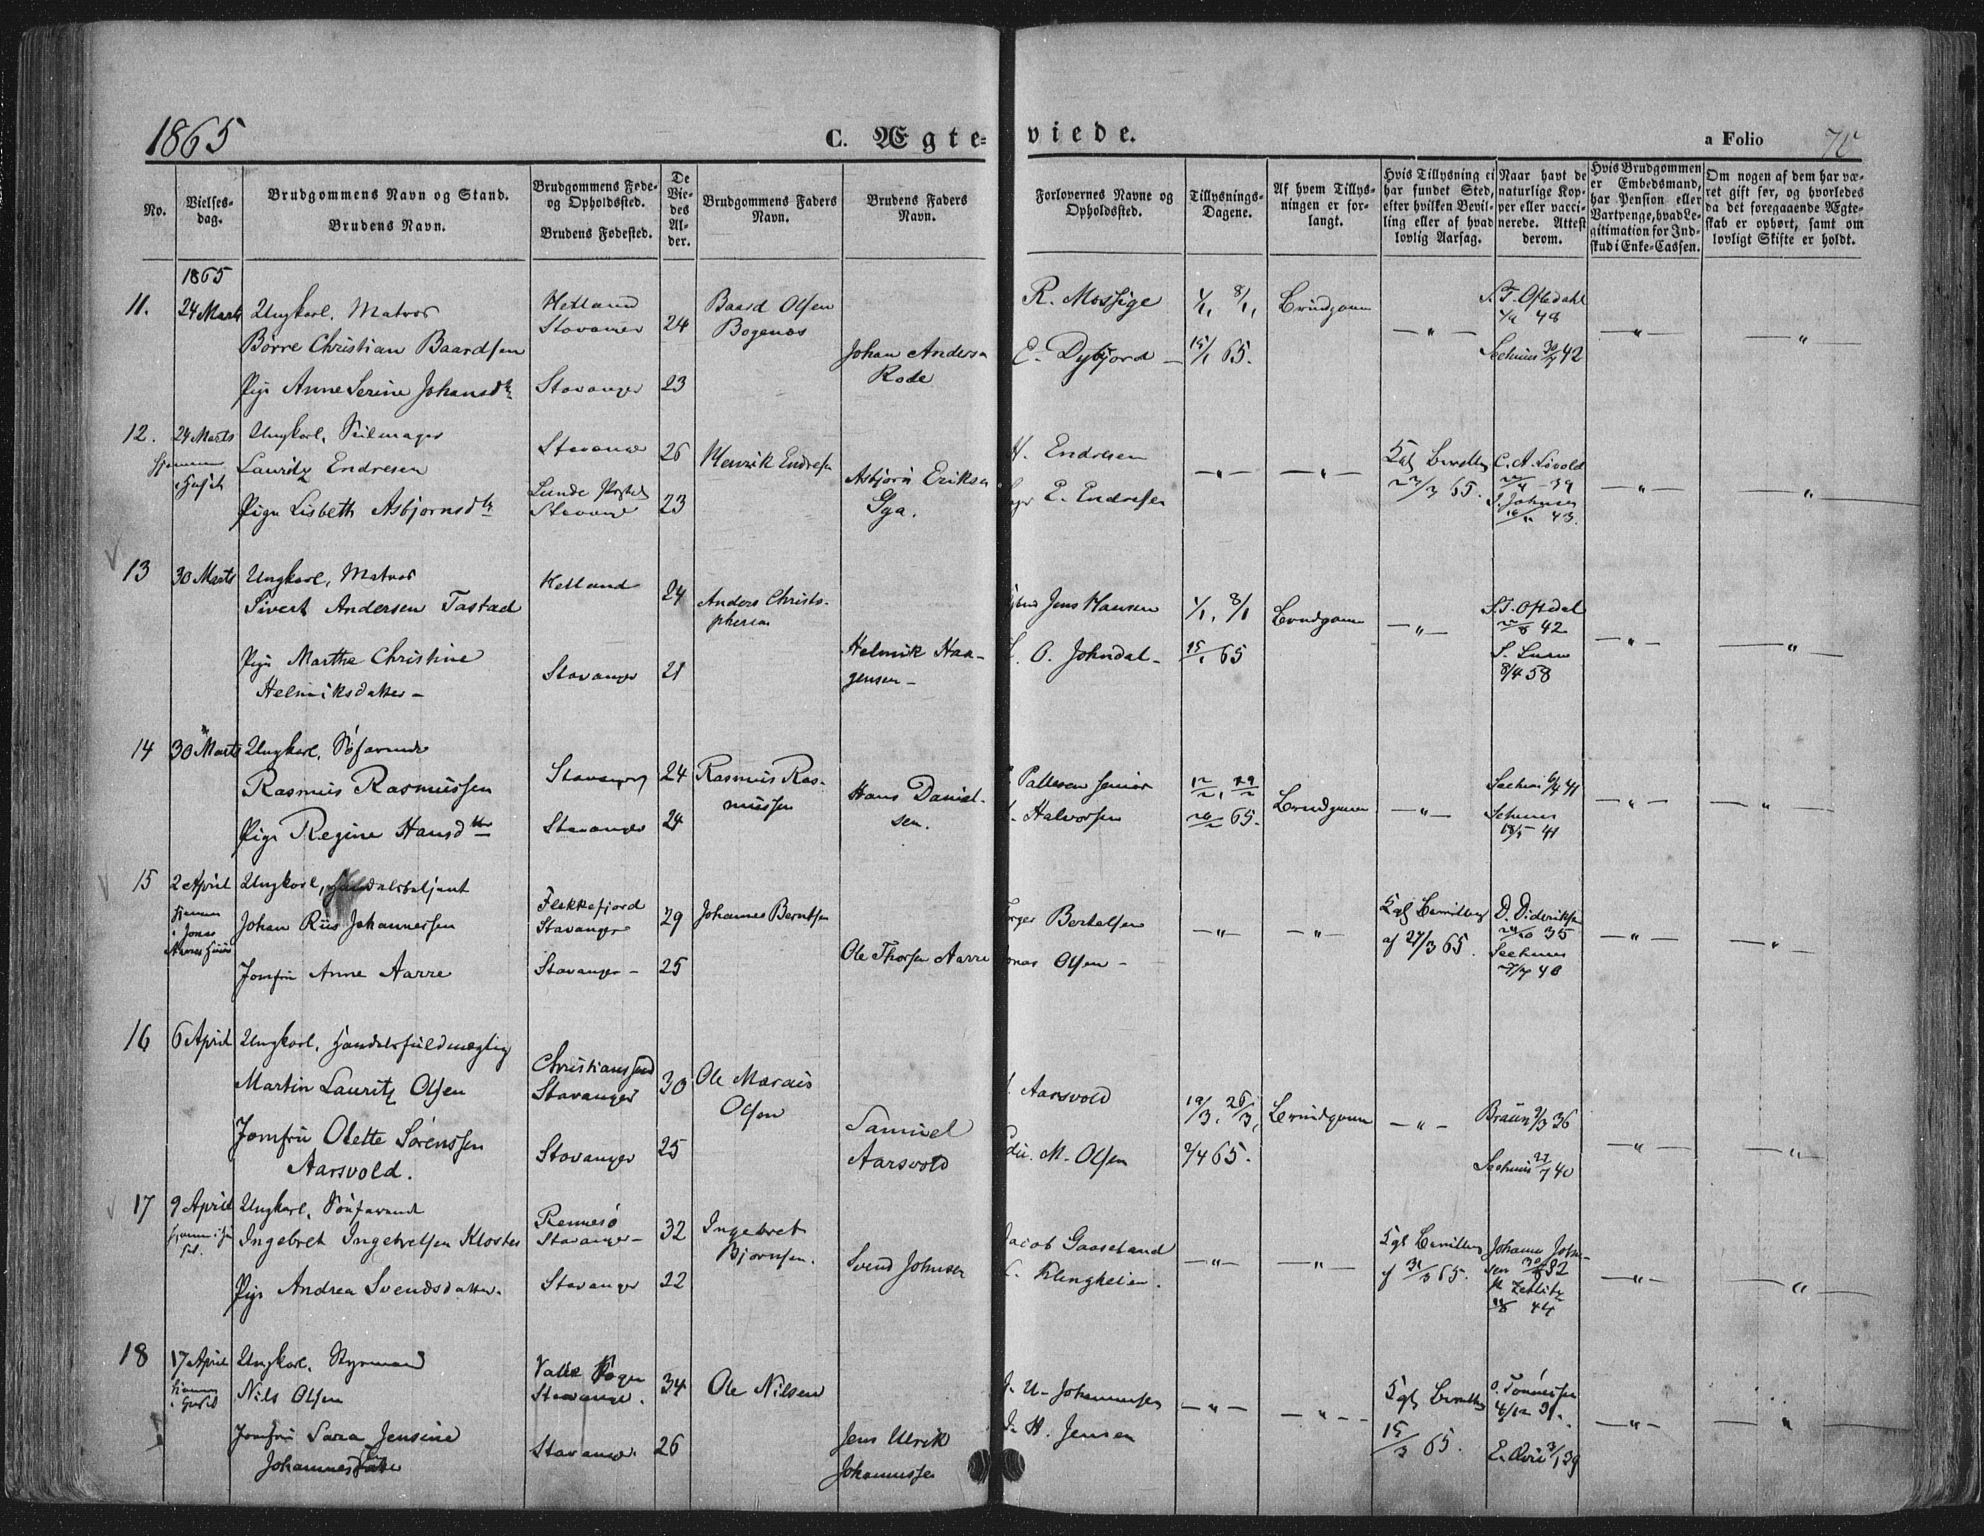 1865
C. Ægteviede.
a Folio 70
No.
Vielsesdag.
Brudgommens Navn og Stand.
Brudens Navn.
Brudgommens Føde- og Opholdssted.
Brudens Fødested.
De Viedes Alder.
Brudgommens Faders Navn.
Brudens Faders Navn.
Forlovernes Navne og Opholdssted.
Tillysnings-Dagene.
Af hvem Tillysningen er forlangt.
Hvis Tillysning ei har fundet Sted, efter hvilken Bevilling eller af hvad lovlig Aarsag.
Naar havt de naturlige Kopper eller vaccinerede. Attest derom.
Hvis Brudgommen er Embedsmand, har Pension eller Vartpenge, hvad Legitimation for Indskud i Enke-Cassen.
Om nogen af dem har været gift før, og hvorledes da det foregaaende Ægteskab er ophørt, samt om lovligt Skifte er holdt.
1865
11. 24 Marts Ungkarl, Matros Hetland Stavanger 24 Baard Olsen Bogenæs
Børre Christian Baardsen
Johan Andersen Rode
Pige Anne Serine Johansdtr Stavanger 23
R. Mossige 1/1, 8/1, Brudgom — " — S. T. Oftedahl
E. Dybfjord — 15/1 65. Sechuus 30/7 42
12. 24 Marts Ungkarl, Seilmager Stavanger 26 Henrik Endresen
hjemme i Huset
Lauritz Endresen
Asbjørn Eriksen Gya.
Pige Lisbeth Asbjørnsdtr Lunde Præstegj Stavanger 23
H. Endresen — " — — " — Kgl Bevilling 22/3 65. C. A. Løvold
E. Endresen S. Johnsen 43.
13 30 Marts Ungkarl, Matros Hetland 24 Anders Christopphersen
Sivert Andersen Tastad
Pige Marthe Christine Helmiksdatter — Stavanger 21 Helmik Haagensen —
Jens Hansen 1/1, 8/1 Brudgom — " — S. T. Oftedal 42
O. Johndal — 15/1 65 8/4 58
14 30 Marts Ungkarl, Søfarende Stavanger 24 Rasmus Rasmussen
Rasmus Rasmussen
Hans Danielsen.
Pige Regine Hansdtr Stavanger 24
Pallesen senior 12/2, 19/2 Brudgom — " — Sechuus 6/4 41
Halvorsen 26/2 65. Sechuus 18/5 41
15 2 April Ungkarl, Handelsbetjent Flekkefjord Stavanger 29 Johannes Berntsen
hjemme i Jonas Aarres Huus
Johan Riis Johannessen
Ole Thorsen Aarre
Jomfru Anne Aarre Stavanger — 25
Børger Bertelsen — " — — " — Kgl Bevilling af 27/3 65. D. Dideriksen 35
Jonas Olsen — Sechuus 40
16 6 April Ungkarl, Handelsfuldmægtig Christianssund Stavanger 30 Ole Marcus Olsen
Martin Lauritz Olsen
Jomfru Olette Sørenssen Aarsvold. Stavanger 25 Samuel Aarsvold
Aarsvold 19/3, 26/3, Brudgom — " — Braun 9/3 36
Edu. M. Olsen 2/4 65. Sechuus 27/7 40
17 9 April Ungkarl, Søfarende Rennesø Stavanger — 32 Ingebret Bjørnsen.
Ingebret Ingebretsen Kloster
Svend Johnsen
Pige Andrea Svendsdatter. Stavanger 22
Jacob Gaaseland — " — — " — Kgl Bevilling af 31/3 65. Johannes Johnsen 30/8 32
Klengheien. Zetlitz 44
18 17 April Ungkarl, Styrmand Valle Sogn Stavanger. 34 Ole Nilsen
hjemme i Huset
Nils Olsen
Jomfru Sara Jensine Johannesdatter Stavanger 26 Jens Ulrik Johannessen
J. U. Johannessen — " — — " — Kgl Bevilling 15/3 65. O. Tønnessen 4/12 31.
J. H. Jensen